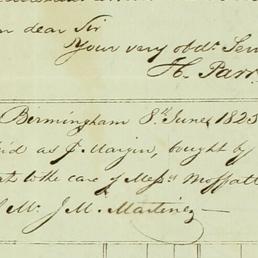 dear Sir
Your very obdt Serv
H. Parr
Birmingham 8th June 1825
as Margin, bought by
to the care of Messrs Moffatt
Mr J. M. Martinez